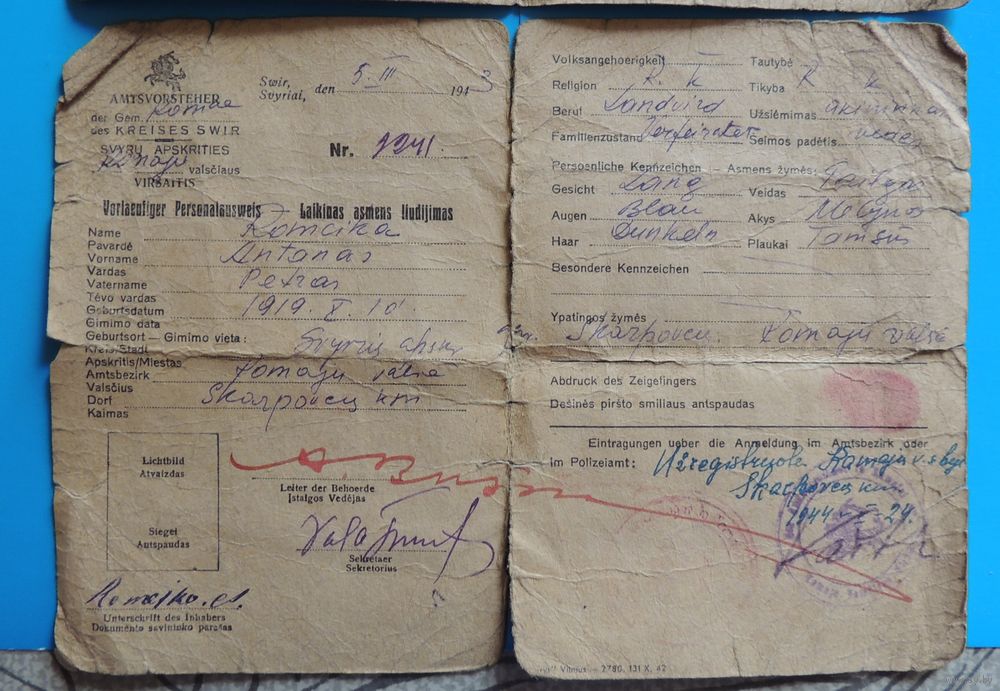 AMTSVORSTEHER
der Gem. Komae
des KREISES SWIR
SVYRŲ APSKRITIES
valsčiaus
VIRŠAITIS
Swir,
Svyriai, den 5. III 1943
Nr. 1241.
Vorlaeufiger Personalausweis — Laikinas asmens liudijimas
Name Romeika
Pavardė
Vorname Antanas
Vardas
Vatername Petras
Tėvo vardas
Geburtsdatum 1919. X. 10
Gimimo data
Geburtsort — Gimimo vieta:
Kreis/Stadt Svyrių apskr.
Apskritis/Miestas
Amtsbezirk Komajų valsč.
Valsčius
Dorf Skarpovcų km
Kaimas
Lichtbild
Atvaizdas
Siegel
Antspaudas
Leiter der Behoerde
Įstaigos Vedėjas
Sekretaer
Sekretorius
Romejko. A.
Unterschrift des Inhabers
Dokumento savininko parašas
Volksangehoerigkeit Tautybė
Religion R. K. Tikyba R K
Beruf Landvird Užsiėmimas
Familienzustand Verfeiratet Šeimos padėtis vedęs
Persoenliche Kennzeichen — Asmens žymės:
Gesicht Lang Veidas
Augen Blau Akys Mėlynos
Haar Dunkeln Plaukai Tamsūs
Besondere Kennzeichen
Ypatingos žymės
Skarpovcų Komajų valsč
Abdruck des Zeigefingers
Dešinės piršto smiliaus antspaudas
Eintragungen ueber die Anmeldung im Amtsbezirk oder
im Polizeiamt: Užregistruota Kamajų v.
Skarpovcų km
1944-I-24.
Vilnius — 2780. 131 X. 42